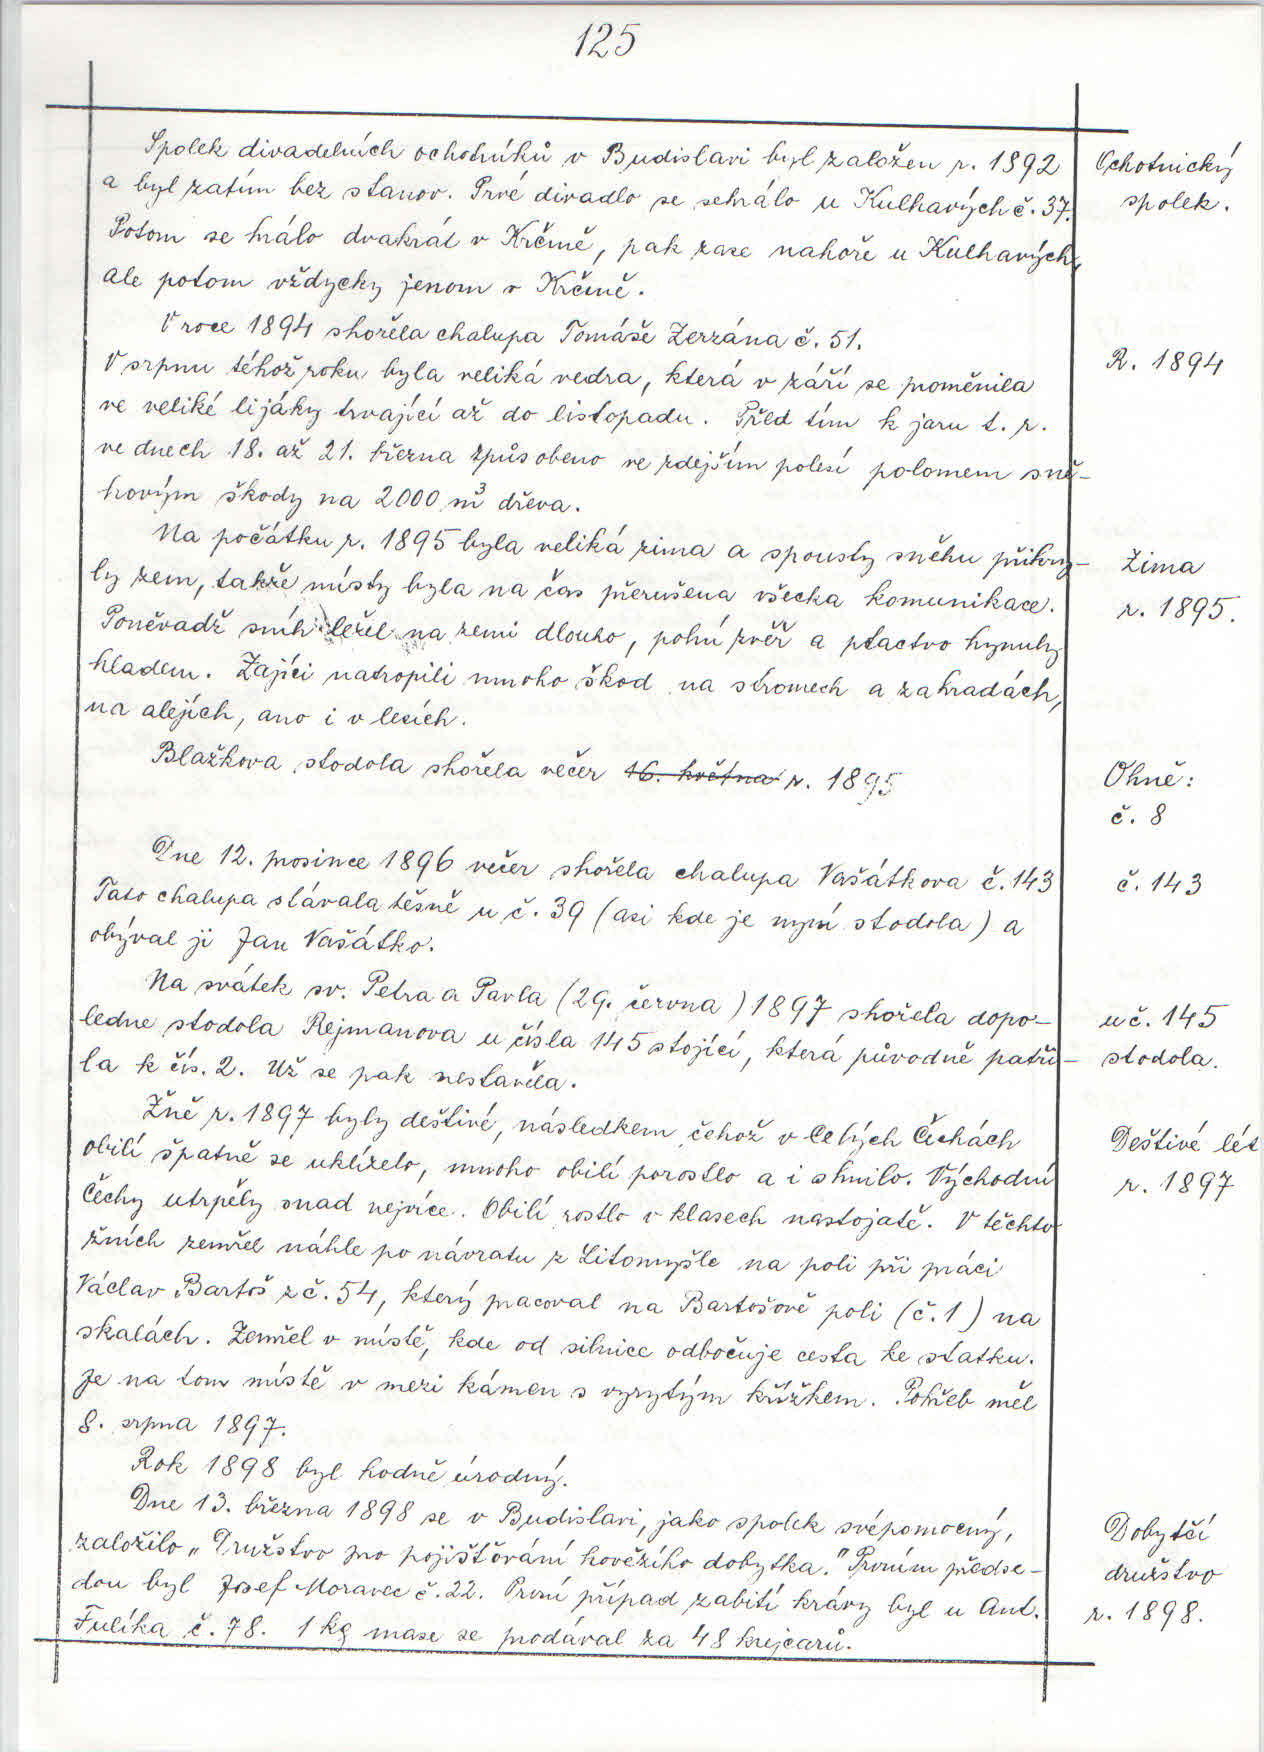 125
Spolek divadelních ochotníků v Budislavi byl založen r. 1892
Ochotnický
a byl zatím bez stanov. Prvé divadlo se sehrálo u Kulhavých č. 37.
spolek.
Potom se hrálo dvakrát v Krčmě, pak zase nahoře u Kulhavých,
ale potom vždycky jenom v Krčmě.
V roce 1894 shořela chalupa Tomáše Zerzána č. 51.
R. 1894
V srpnu téhož roku byla veliká vedra, která v září se proměnila
ve veliké lijáky trvající až do listopadu. Před tím k jaru t. r.
ve dnech 18. až 21. března způsobeno ve zdejším polesí polomem sně-
hovým škody na 2000 m³ dřeva.
Na počátku r. 1895 byla veliká zima a spousty sněhu přikry-
Zima
ly zem, takže místy byla na čas přerušena všecka komunikace.
r. 1895.
Poněvadž sníh ležel na zemi dlouho, polní zvěř a ptactvo hynuly
hladem. Zajíci natropili mnoho škod na stromech a zahradách,
na alejích, ano i v lesích.
Blažkova stodola shořela večer 16. května r. 1895
Ohně:
č. 8
Dne 12. prosince 1896 večer shořela chalupa Vašátkova č. 143
č. 143
Tato chalupa stávala těsně u č. 39 (asi kde je nyní stodola) a
obýval ji Jan Vašátko.
Na svátek sv. Petra a Pavla (29. června) 1897 shořela dopo-
u č. 145
ledne stodola Rejmanova u čísla 145 stojící, která původně patři-
stodola.
la k čís. 2. Už se pak nestavěla.
Žně r. 1897 byly deštivé, následkem čehož v celých Čechách
Deštivé lét
obilí špatně se uklízelo, mnoho obilí porostlo a i shnilo. Východní
r. 1897
Čechy utrpěly snad nejvíce. Obilí rostlo v klasech nastojatě. V těchto
žních zemřel náhle po návratu z Litomyšle na poli při práci
Václav Bartoš z č. 54, který pracoval na Bartošově poli (č. 1) na
skalách. Zemřel v místě, kde od silnice odbočuje cesta ke statku.
Je na tom místě v mezi kámen s vyrytým křížkem. Pohřeb měl
8. srpna 1897.
Rok 1898 byl hodně úrodný.
Dne 13. března 1898 se v Budislavi, jako spolek svépomocný,
Dobytčí
založilo „Družstvo pro pojišťování hovězího dobytka." Prvním předse-
družstvo
dou byl Josef Moravec č. 22. První případ zabití krávy byl u Ant.
r. 1898.
Fulíka č. 78. 1 kg mase se prodával za 48 krejcarů.